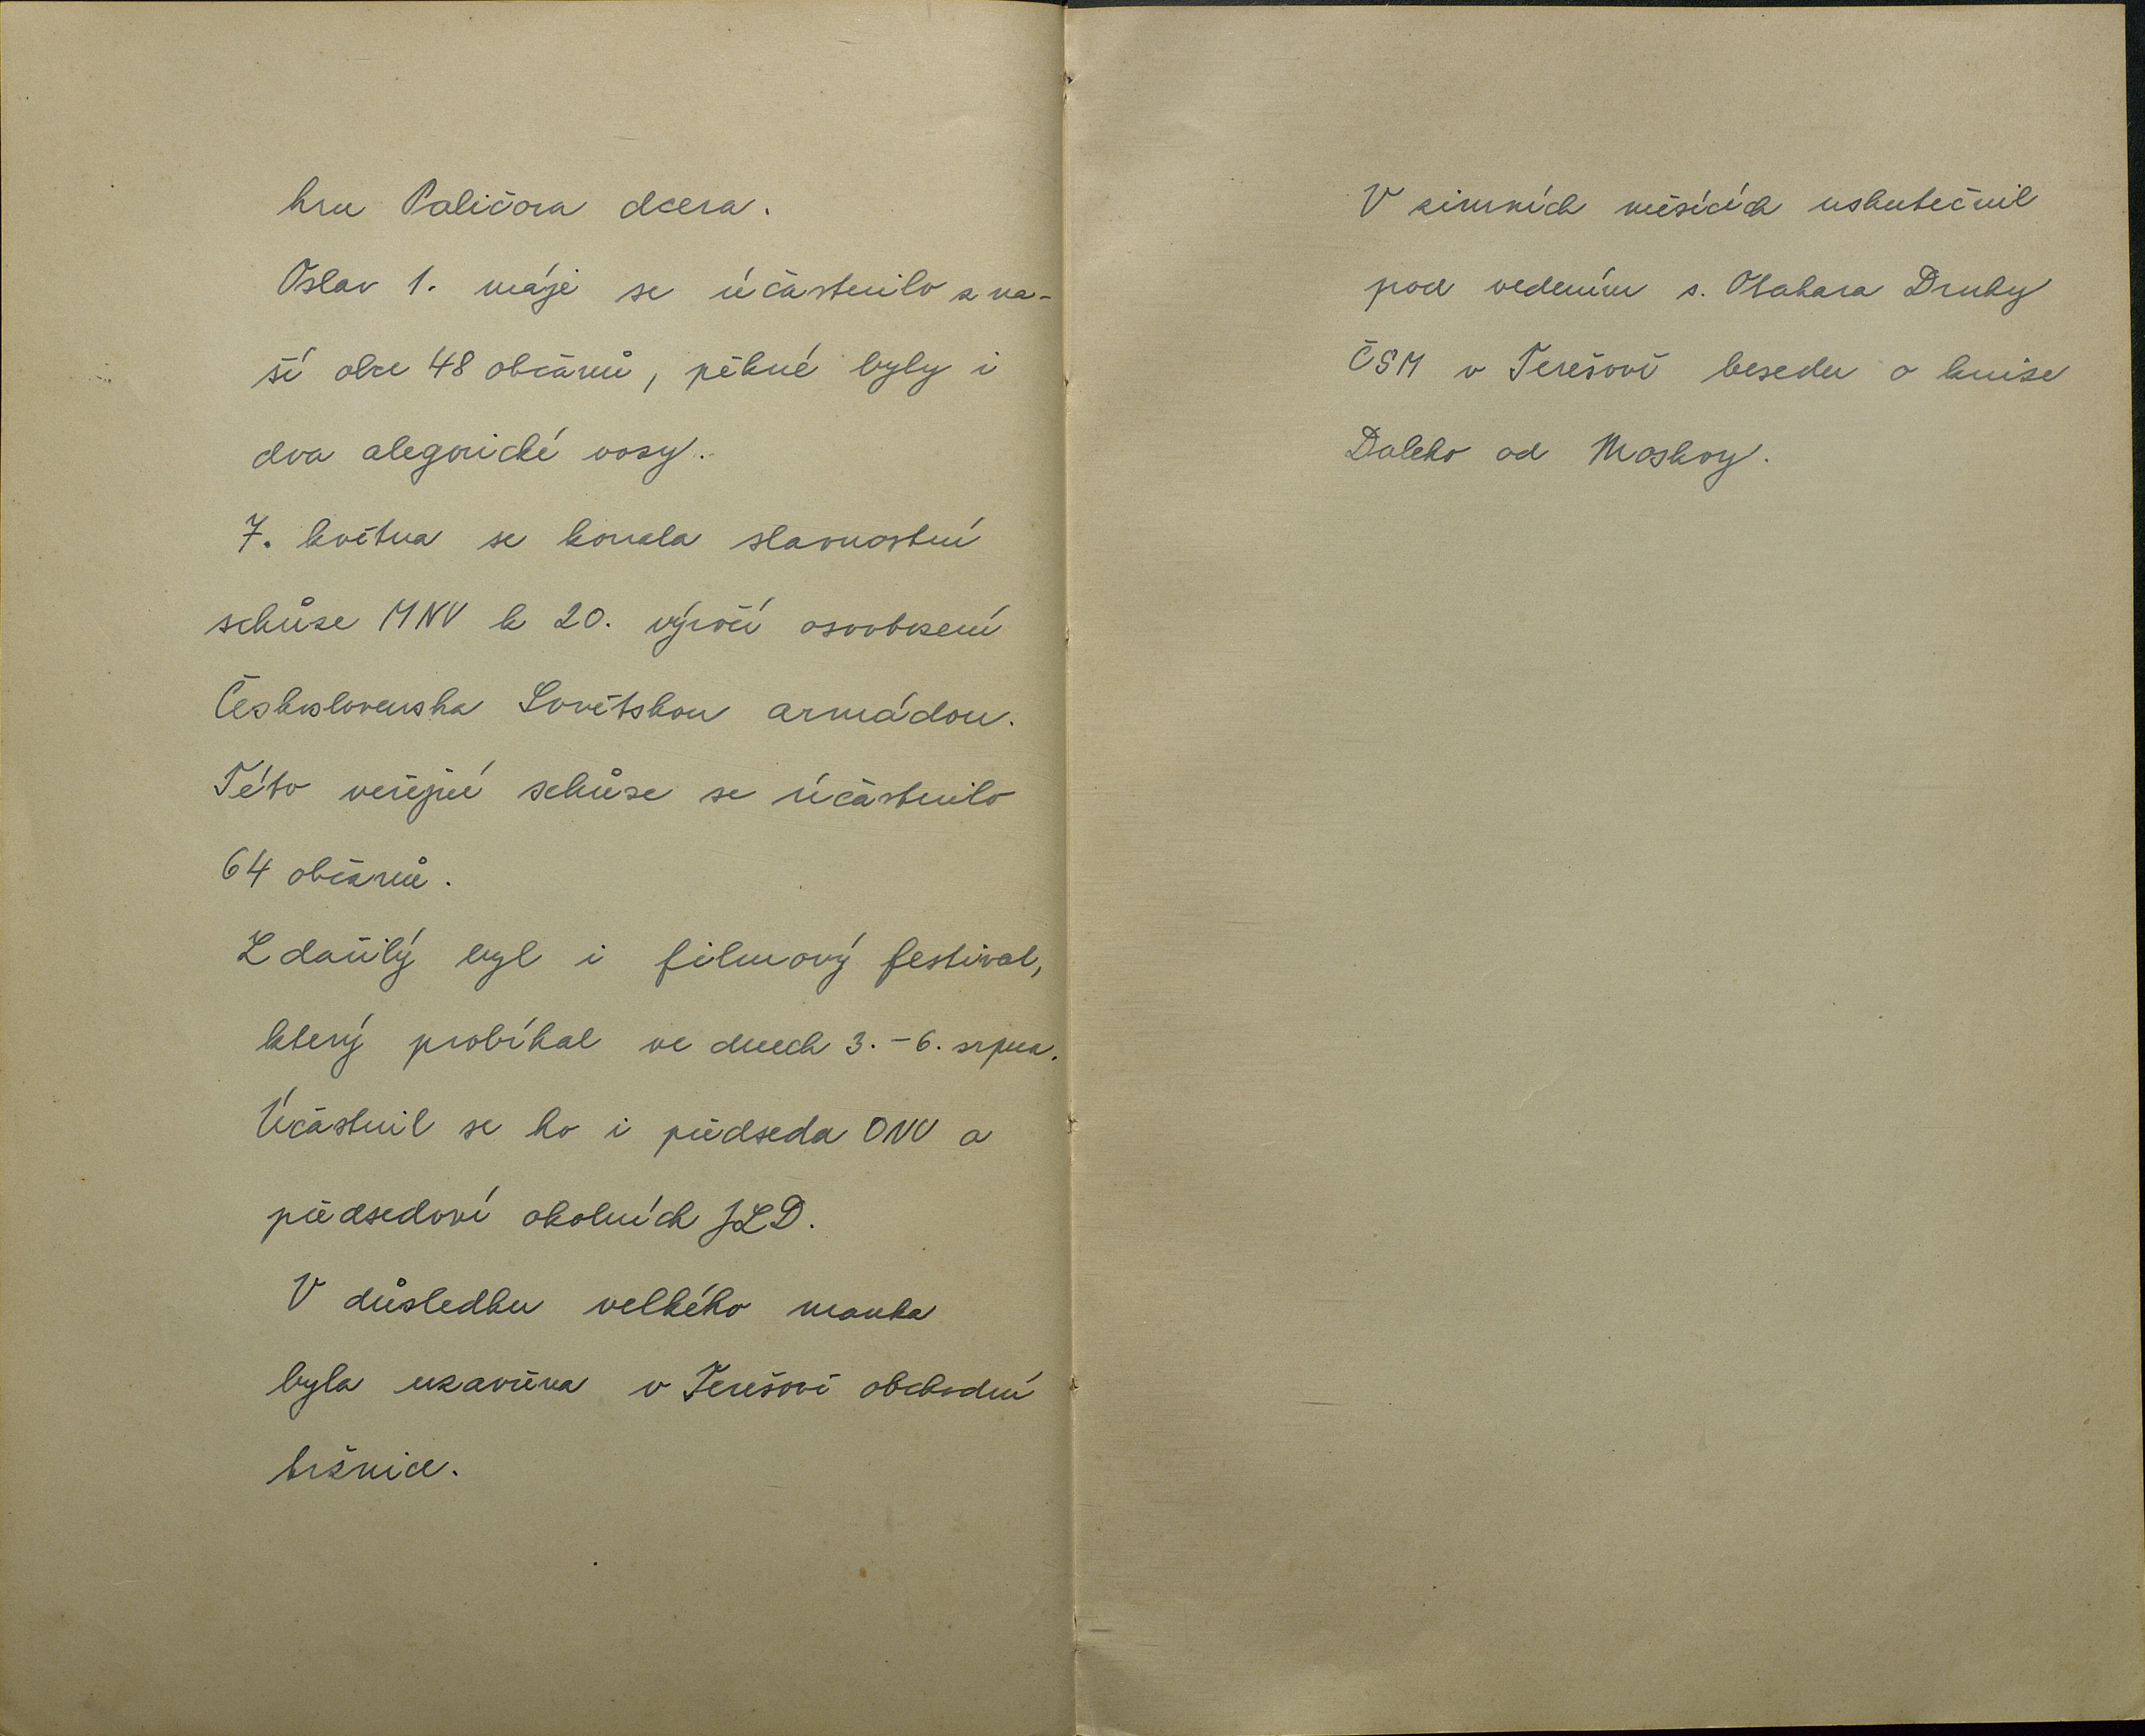 hru Paličova dcera.
Oslav 1. máje se účastnilo z na-
ší obce 48 občanů, pěkné byly i
dva alegorické vozy.
7. května se konala slavnostní
schůze MNV k 20. výročí osvobození
Československa Sovětskou armádou.
Této veřejné schůze se účastnilo
64 občanů.
Zdařilý byl i filmový festival,
který probíhal ve dnech 3.-6. srpna.
Účastnil se ho i předseda ONV a
předsedové okolních JZD.
V důsledku velkého manka
byla uzavřena v Terešově obchodní
tržnice.
V zimních měsících uskutečnil
pod vedením s. Otakara Druhy
ČSM v Terešově besedu o knize
Daleko od Moskvy.